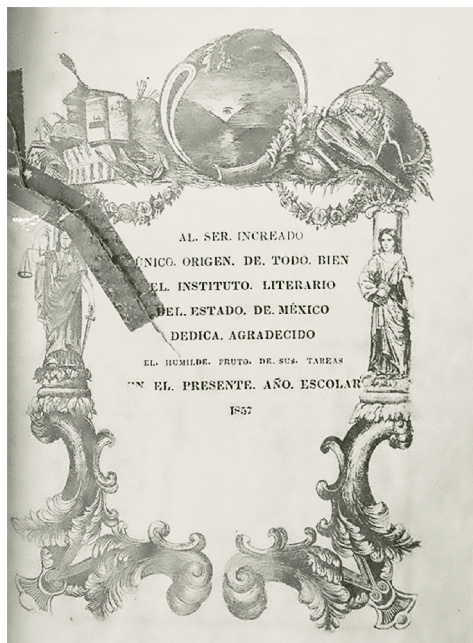 AL. SER. INCREADO
ÚNICO. ORIGEN. DE. TODO. BIEN
EL. INSTITUTO. LITERARIO
DEL. ESTADO. DE. MÉXICO
DEDICA. AGRADECIDO
EL. HUMILDE. FRUTO. DE. SUS. TAREAS
EN EL. PRESENTE. AÑO. ESCOLAR
1857